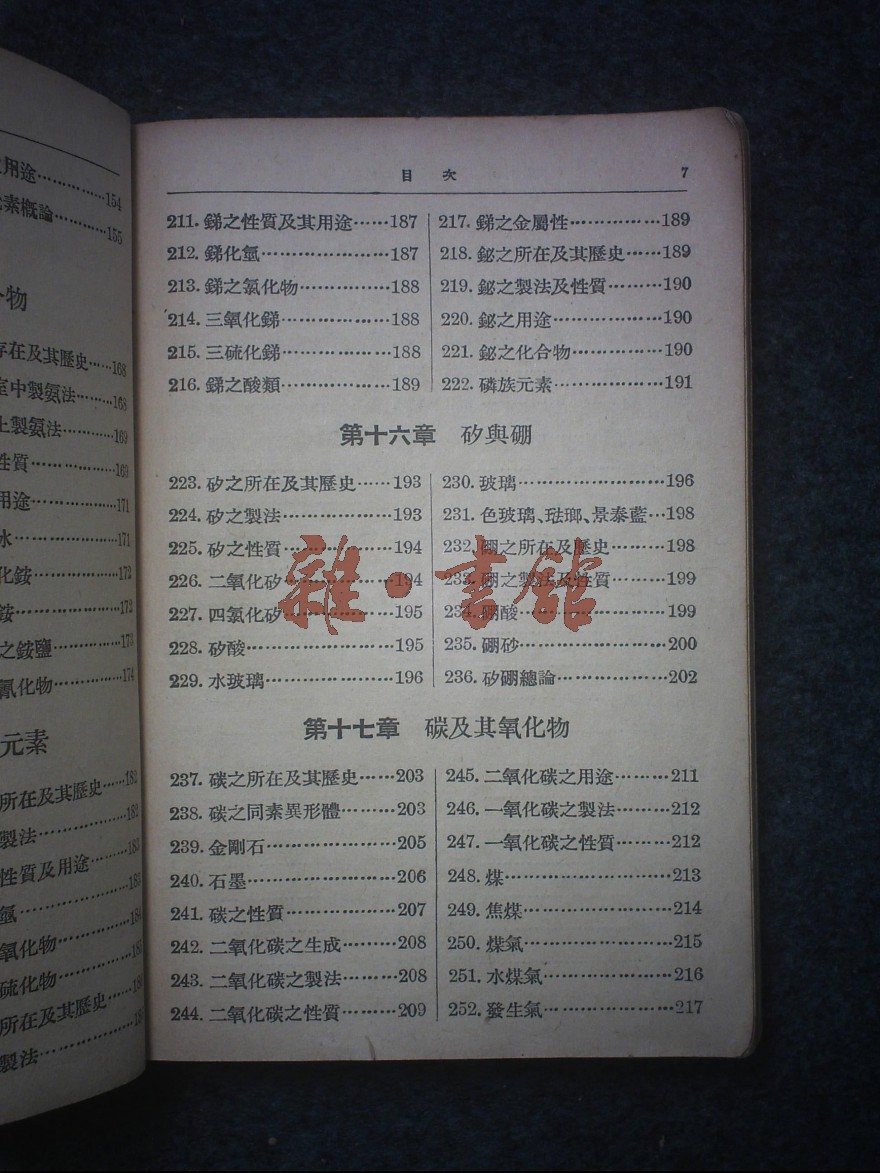 用途……………154
素概論…………155
合物
存在及其歷史……168
室中製氨法………168
上製氨法…………169
性質………………169
用途………………171
水…………………171
化銨………………172
銨…………………172
之銨鹽……………173
氰化物……………174
元素
所在及其歷史……182
製法………………182
性質及用途………183
氫…………………183
氧化物……………184
硫化物……………
所在及其歷史……
製法………………
目 次 7
211. 銻之性質及其用途……187
212. 銻化氫……………187
213. 銻之氯化物…………188
214. 三氧化銻……………188
215. 三硫化銻……………188
216. 銻之酸類……………189
217. 銻之金屬性…………189
218. 鉍之所在及其歷史……189
219. 鉍之製法及性質………190
220. 鉍之用途……………190
221. 鉍之化合物…………190
222. 磷族元素……………191
第十六章 矽與硼
223. 矽之所在及其歷史……193
224. 矽之製法……………193
225. 矽之性質……………194
226. 二氧化矽……………194
227. 四氯化矽……………195
228. 矽酸………………195
229. 水玻璃……………196
230. 玻璃………………196
231. 色玻璃、琺瑯、景泰藍…198
232. 硼之所在及歷史………198
233. 硼之製法及性質………199
234. 硼酸………………199
235. 硼砂………………200
236. 矽硼總論……………202
雜·書館
第十七章 碳及其氧化物
237. 碳之所在及其歷史……203
238. 碳之同素異形體………203
239. 金剛石……………205
240. 石墨………………206
241. 碳之性質……………207
242. 二氧化碳之生成………208
243. 二氧化碳之製法………208
244. 二氧化碳之性質………209
245. 二氧化碳之用途………211
246. 一氧化碳之製法………212
247. 一氧化碳之性質………212
248. 煤………………213
249. 焦煤………………214
250. 煤氣………………215
251. 水煤氣……………216
252. 發生氣……………217